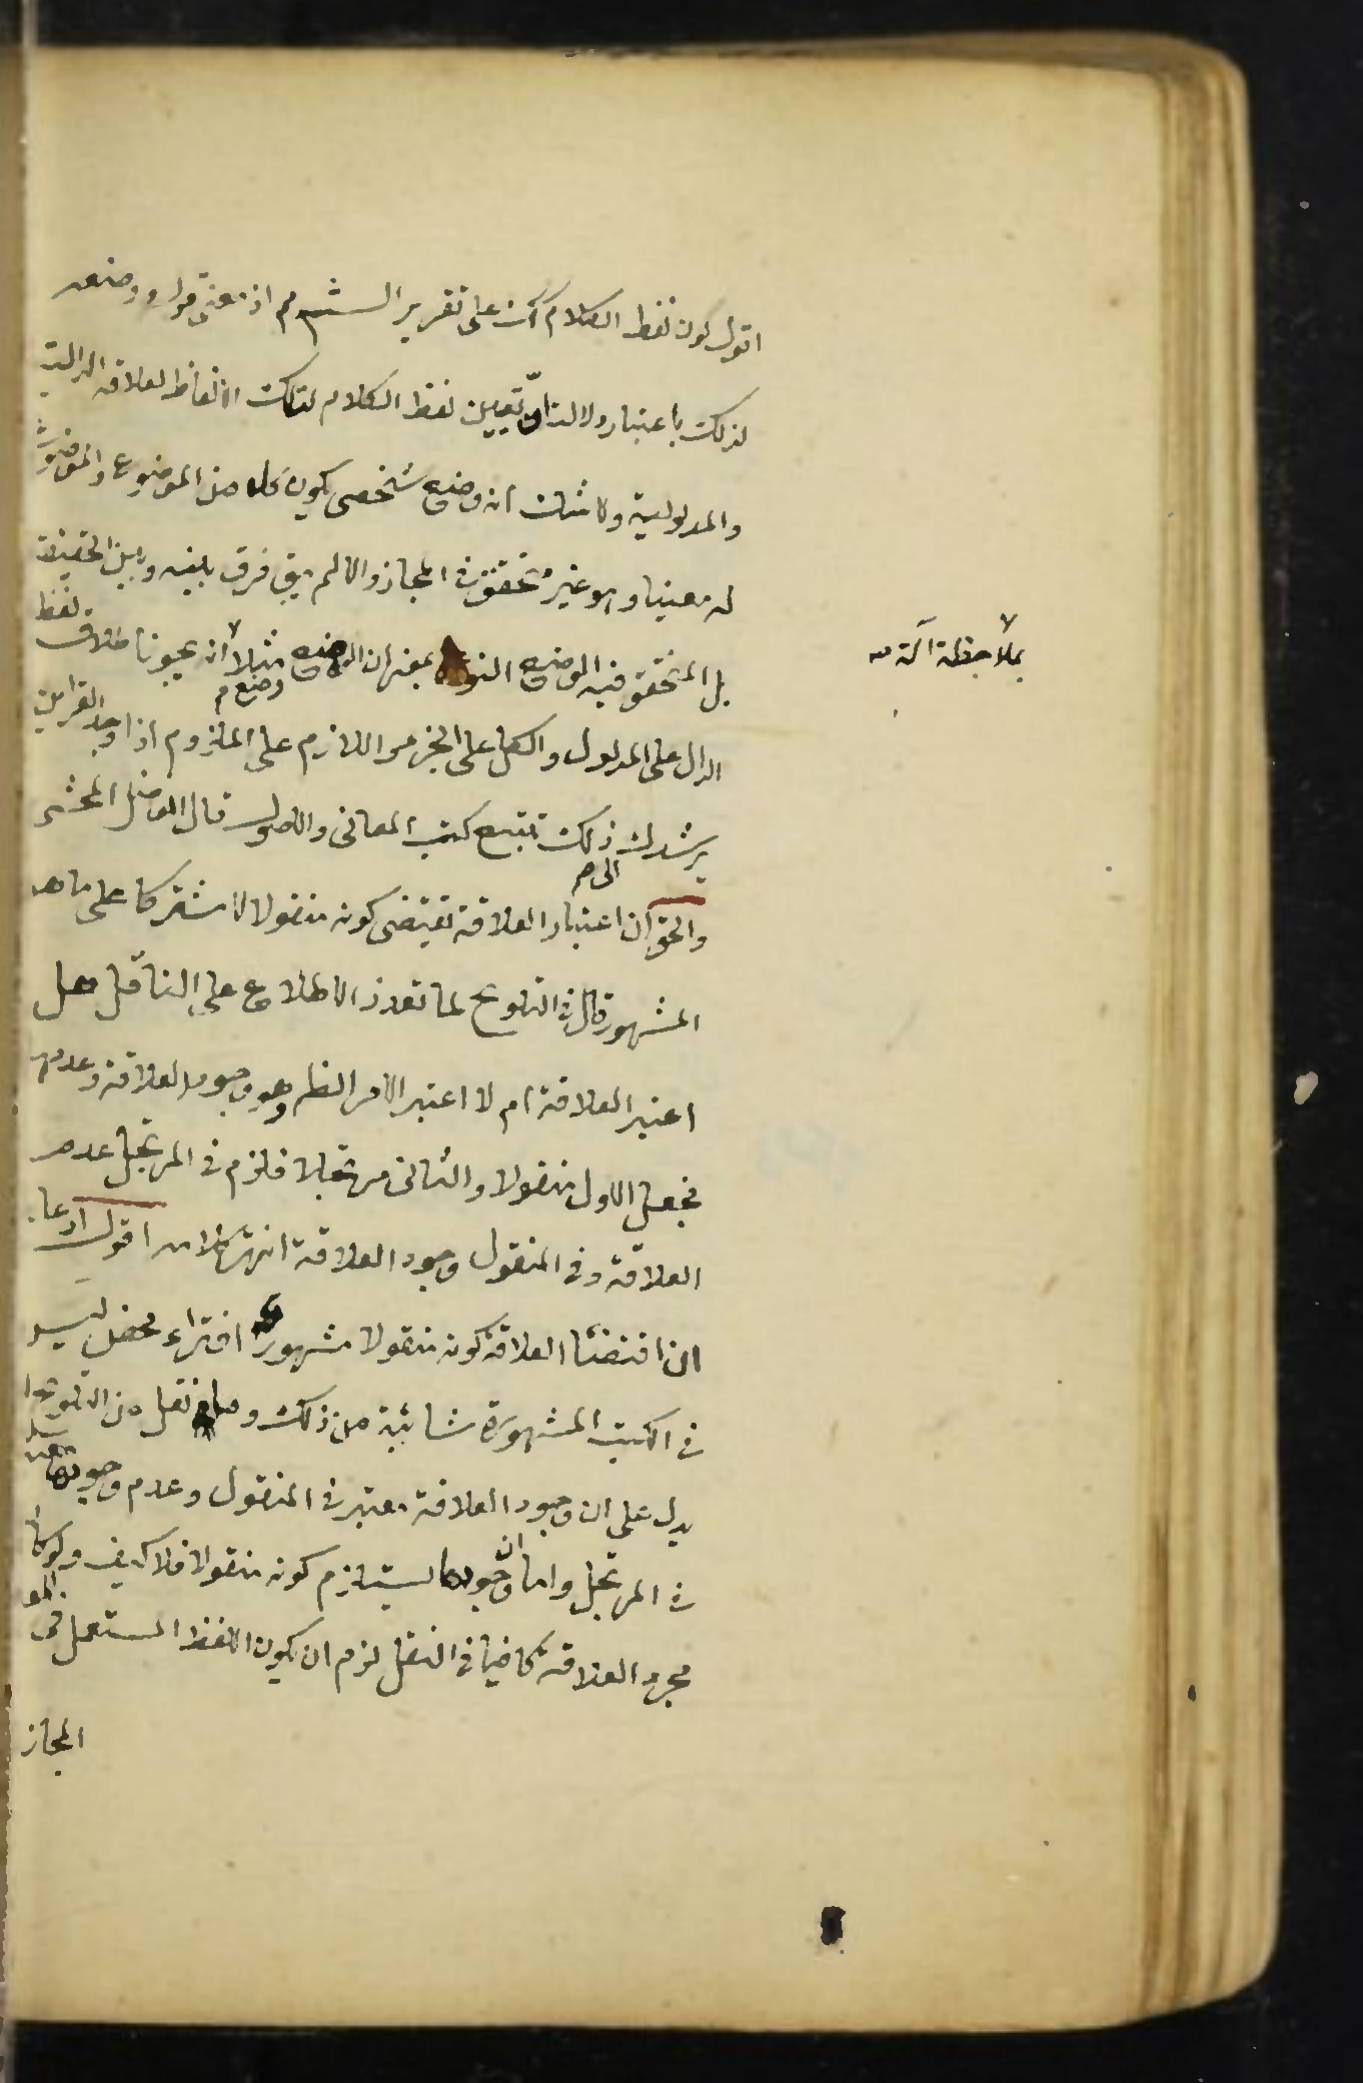 اقول كون لفظ الكلام آه على تقرير الشم م اذ معنى قوله ووضعه
لذلك باعتبار دلالته تعيين لفظ الكلام لتلك الالفاظ لعلاقة الدالية
والمدلولية ولا شك انه وضع شخصى يكون كل من الموضوع والموضوع
له معينا وهو غير متحقق فى المجاز والا لم يبق فرق بينه وبين الحقيقة
بل المتحقق فيه الوضع النوعى بمعنى ان الواضع وضع م مثلا انه يجوز اطلاق لفظ
بملاحظة آلة
الدال على المدلول والكل على الجزء واللازم على الملزوم اذا وجد القراين
يرشدك الى ذلك تتبع كتب المعانى والاصول قال الفاضل المحشى
والحق ان اعتبار العلاقة تقتضى كونه منقولا لا مشتركا على ما هو
المشهور قال فى التلويح لما تعذر الاطلاع على الناقل هل
اعتبر العلاقة ام لا اعتبر الامر الظ وهو وجود العلاقة وعدمها
فجعل الاول منقولا والثانى مرتجلا فلزم فى المرتجل عدم
العلاقة وفى المنقول وجود العلاقة انتهى كلامه اقول ادعاء
ان اقتضاء العلاقة كونه منقولا مشهور افتراء محض ليس
فى الكتب المشهورة شائبة من ذلك وما نقل من التلويح انما
يدل على ان وجود العلاقة معتبر فى المنقول وعدم وجودها معتبر
فى المرتجل واما ان وجودها يستلزم كونه منقولا فلا كيف ولو كان
مجرد العلاقة كافيا فى النقل لزم ان يكون اللفظ المستعمل فى المعنى
المجاز